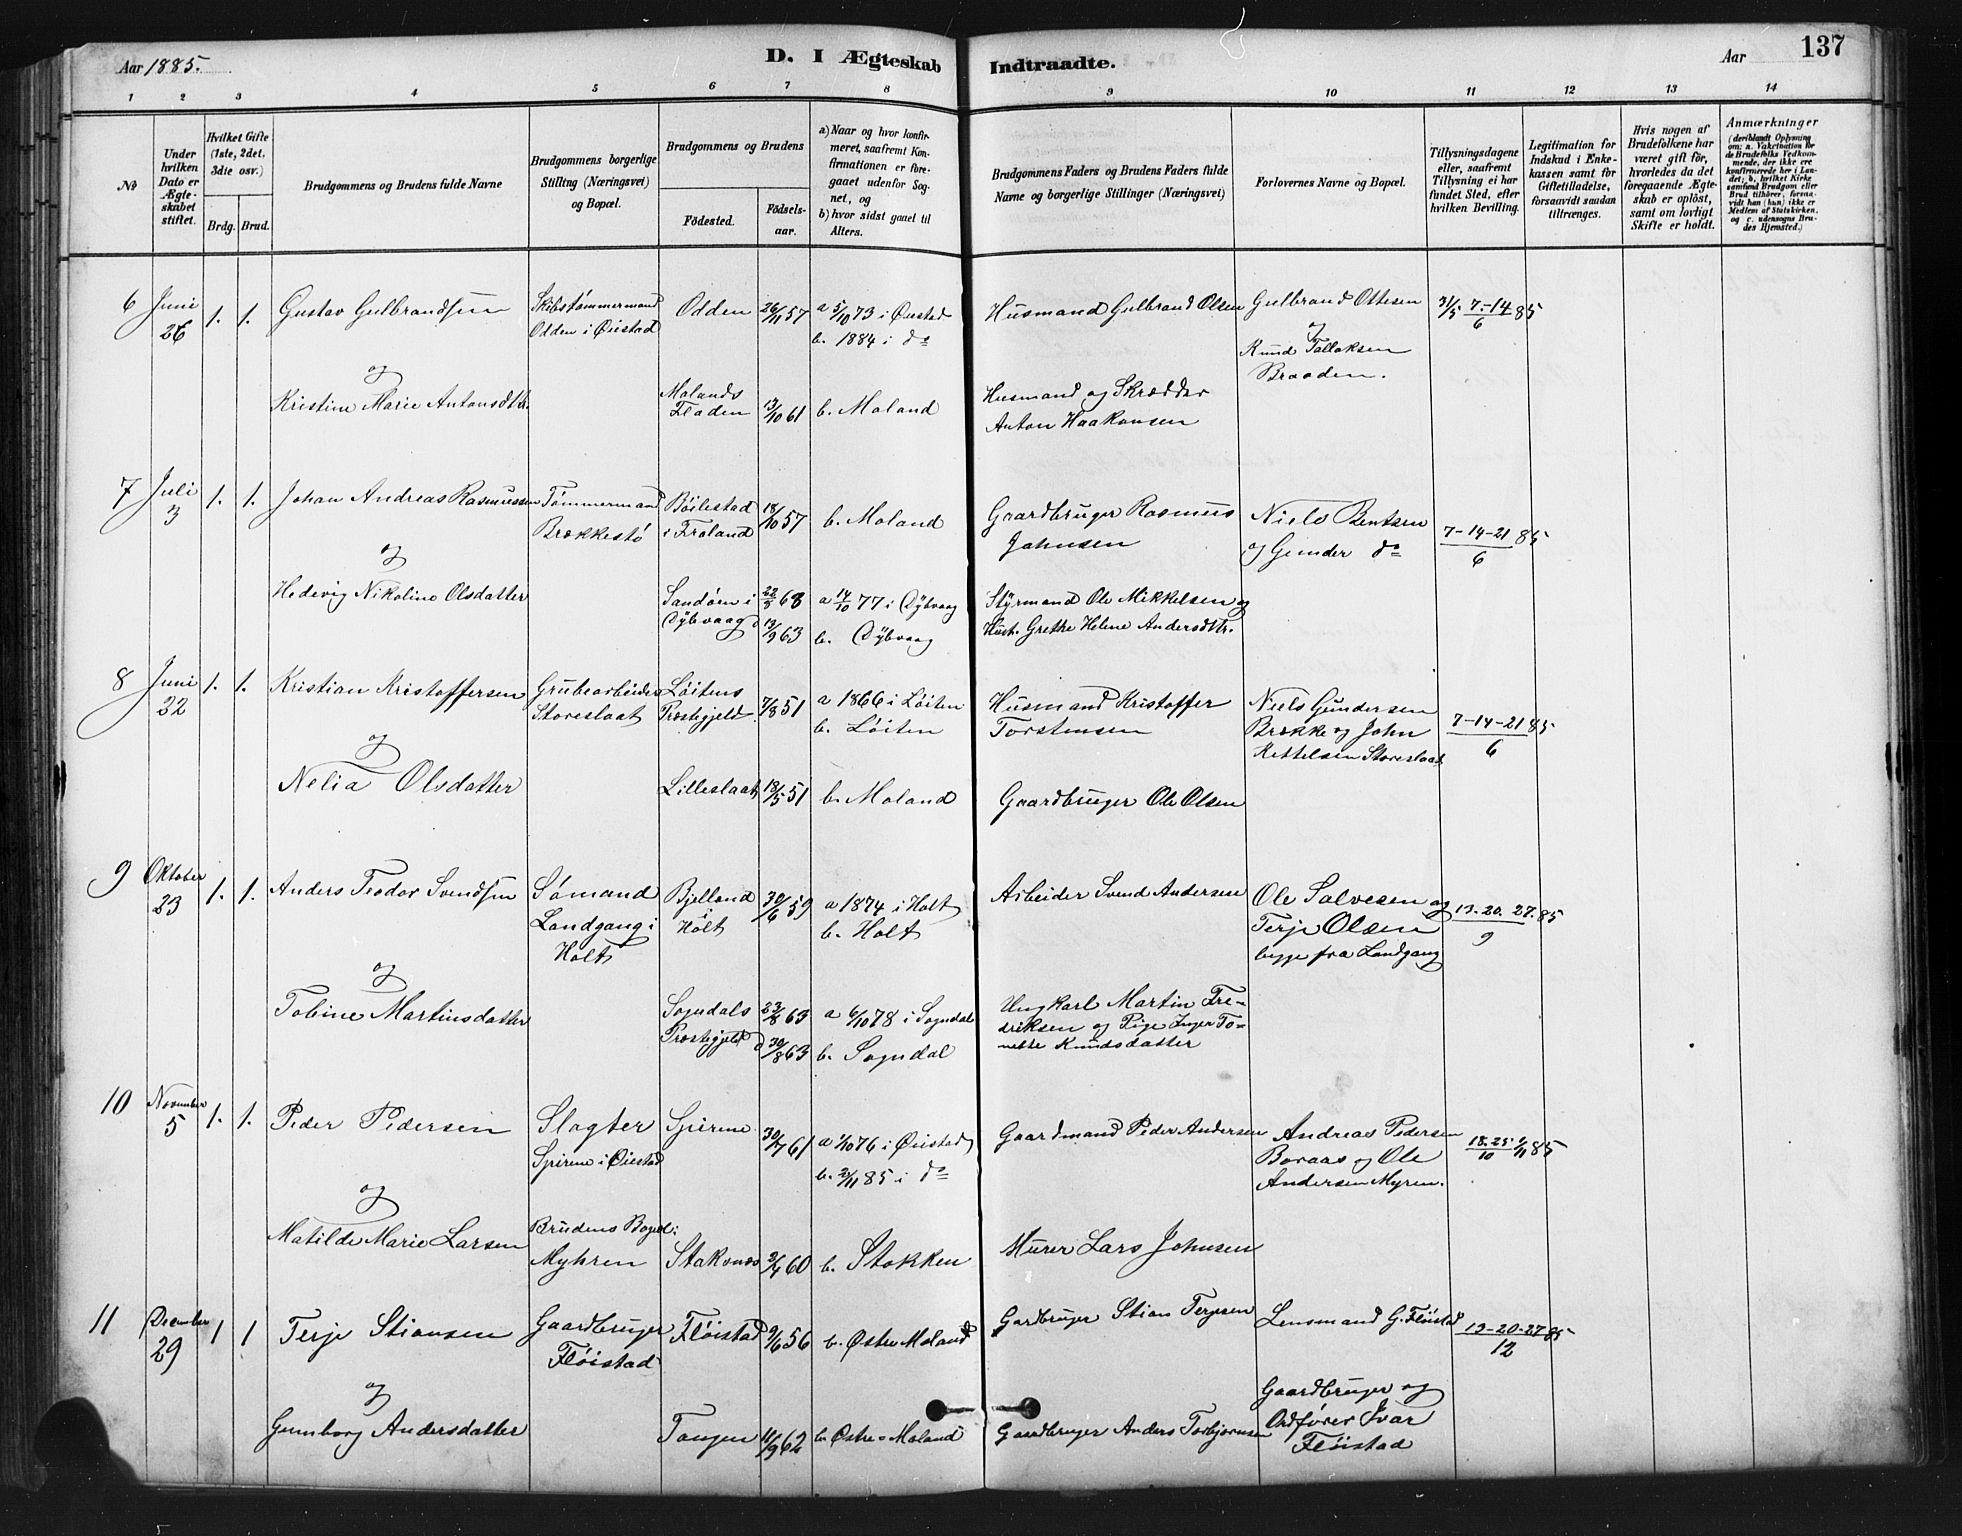 Aar 1885.
D. I Ægteskab
Indtraadte.
Aar
137
1 2 3 4 5 6 7 8 9 10 11 12 13 14
No
Under hvilken Dato er Ægteskabet stiftet.
Hvilket Gifte (1ste, 2det, 3die osv.)
Brdg. Brud.
Brudgommens og Brudens fulde Navne
Brudgommens borgerlige Stilling (Næringsvei) og Bopæl.
Brudgommens og Brudens
Födested.
Födselsaar.
a) Naar og hvor konfirmeret, saafremt Konfirmationen er foregaaet udenfor Sognet, og
b) hvor sidst gaaet til Alters.
Brudgommens Faders og Brudens Faders fulde Navne og borgerlige Stillinger (Næringsvei)
Forlovernes Navne og Bopæl.
Tillysningsdagene eller, saafremt Tillysning ei har fundet Sted, efter hvilken Bevilling.
Legitimation for Indskud i Enkekassen samt for Giftetilladelse, forsaavidt saadan tiltrænges.
Hvis nogen af Brudefolkene har været gift för, hvorledes da det foregaaende Ægteskab er oplöst, samt om lovligt Skifte er holdt.
Anmærkninger
6 Juni 26 1. 1. Gustav Gulbrandsen Skibstømmermand Odden i Øiestad Odden 26/11 57 a 5/10 73 i Øiestad b. 1884 i do Husmand Gulbrand Olsen Gulbrand Ottesen og Knud Tallaksen Braaden. 31/5 7-14/6 85
og
Kristine Marie Antonsdtr. Molands Fladen 13/10 61 b. Moland Husmand og Skrædder Anton Haakonsen
7 Juli 3 1. 1. Johan Andreas Rasmussen Tømmermand Brækkestø Böilestad i Froland 18/10 57 b. Moland Gaardbruger Rasmus Johnsen Niels Bentsen og Gunder do 7-14-21/6 85
og
Hedevig Nikoline Olsdatter Sandøen i Dybvaag 22/8 63 d 13/9 63 a 14/10 77 i Dybvaag b. Dybvaag Styrmand Ole Mikkelsen og Hust. Grethe Helene Andersdtr.
8 Juni 22 1. 1. Kristian Kristoffersen Grubearbeider Storeslaat Løitens Præstegjeld 7/8 51 a 1866 i Løiten b. Løiten Husmand Kristoffer Torstensen Niels Gundersen Brække og John Kettelsen Storeslaat 7-14-21/6 85
og
Nelia Olsdatter Lilleslaat 18/5 51 b. Moland Gaardbruger Ole Olsen
9 Oktober 23 1. 1. Anders Teodor Svendsen Sømand Landgang i Holt Bjelland i Holt 30/6 59 a 1874 i Holt b. Holt Arbeider Svend Andersen Ole Salvesen og Terje Olsen begge fra Landgang 13-20-27/9 85
og
Tobine Martinsdatter Sogndals Præstegjeld 23/8 63 d 30/8 63 a 6/10 78 i Sogndal b. Sogndal Ungkarl Martin Fredriksen og Pige Inger Tonette Knudsdatter
10 November 5 1. 1. Peder Pedersen Slagter Spirene i Øiestad Spirene 30/7 61 a 1/10 76 i Øiestad b. 2/11 85 i do Gaardmand Peder Andersen Andreas Pedersen Boraas og Ole Andersen Myren. 18-25/10 1/11 85
og
Matilde Marie Larsen Brudens Bopæl: Myhren Staksnæs 3/4 60 b. Stokken Murer Lars Johnsen
11 December 29 1 1 Terje Stiansen Gaardbruger Fløistad Fløistad 9/6 56 b. Østre Moland Gardbruger Stian Terjesen Lensmand G. Fløistad 13-20-27/12 85
og
Gunborg Andersdatter Tangen 11/9 62 b. Østre-Moland Gaardbruger Anders Torbjørnsen Gaardbruger og Ordfører Ivar Fløistad